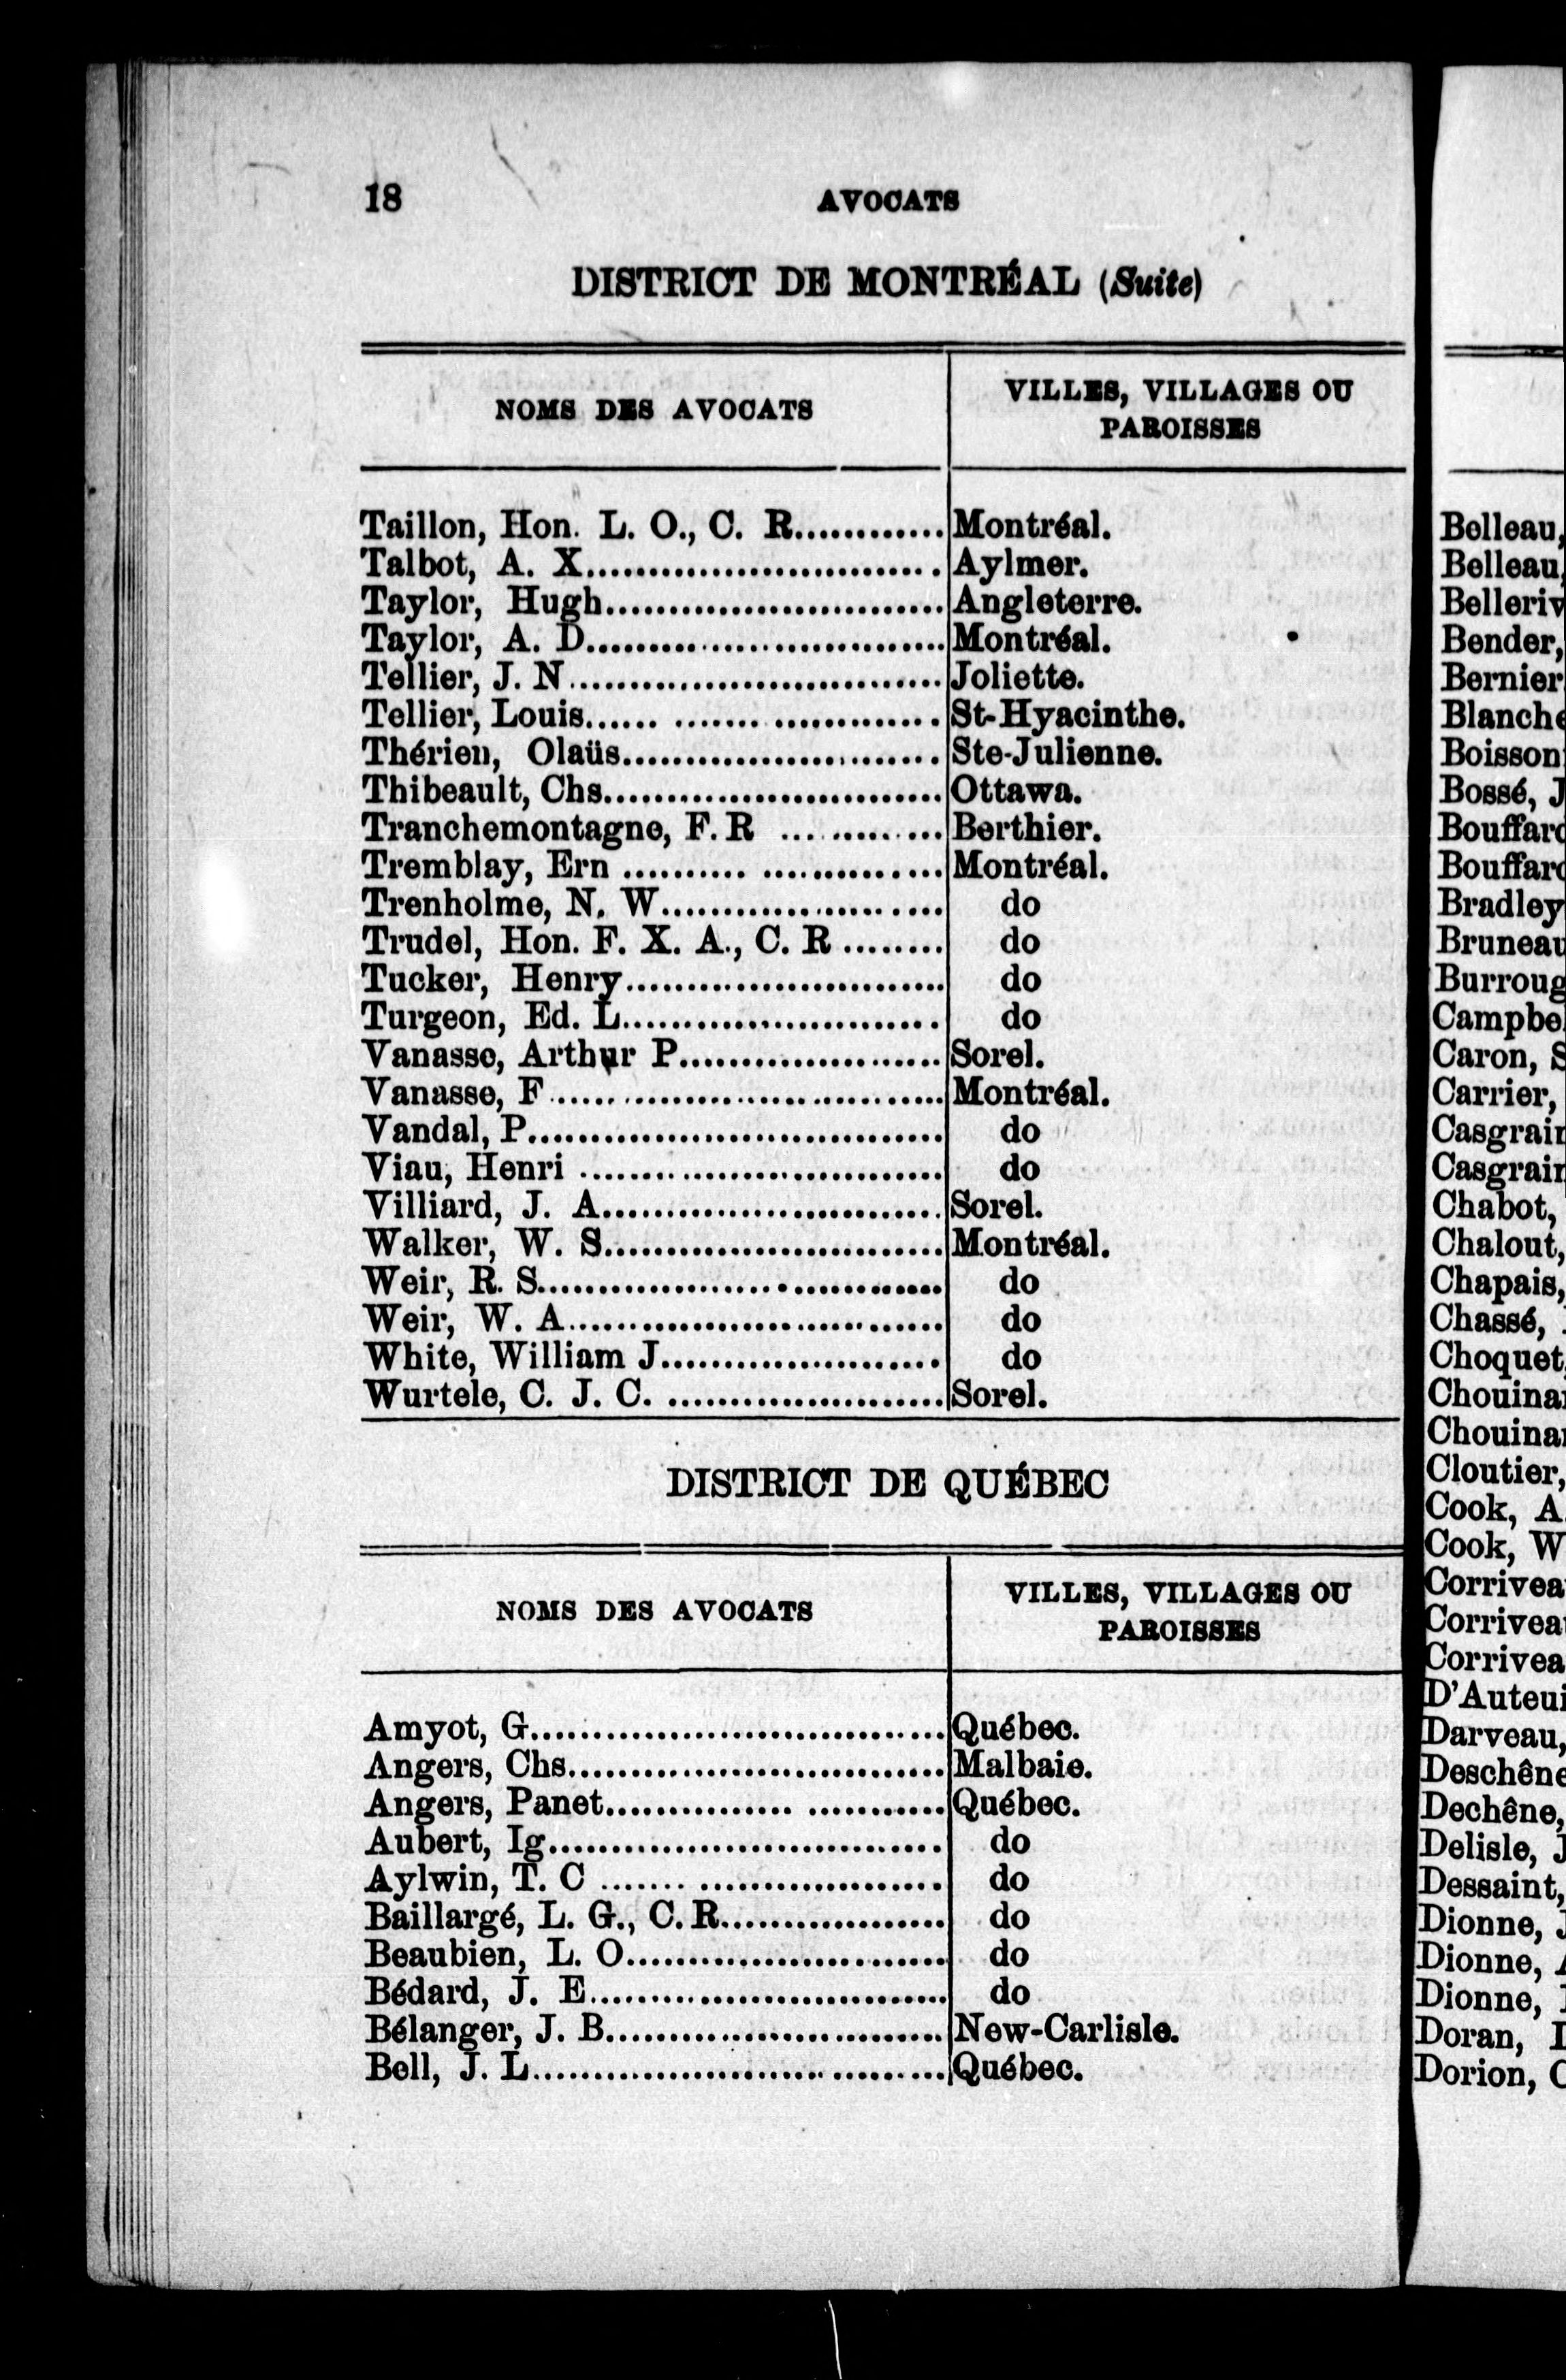 18 AVOCATS
DISTRICT DE MONTRÉAL (Suite)
NOMS DES AVOCATS
VILLES, VILLAGES OU
PAROISSES
Taillon, Hon. L. O., C. R............ Montréal.
Talbot, A. X............................. Aylmer.
Taylor, Hugh............................ Angleterre.
Taylor, A. D............................. Montréal.
Tellier, J. N............................... Joliette.
Tellier, Louis............................. St-Hyacinthe.
Thérien, Olaüs.......................... Ste-Julienne.
Thibeault, Chs............................ Ottawa.
Tranchemontagne, F. R ............. Berthier.
Tremblay, Ern .......................... Montréal.
Trenholme, N. W....................... do
Trudel, Hon. F. X. A., C. R ........ do
Tucker, Henry.......................... do
Turgeon, Ed. L.......................... do
Vanasse, Arthur P..................... Sorel.
Vanasse, F................................ Montréal.
Vandal, P.................................. do
Viau, Henri .............................. do
Villiard, J. A............................ Sorel.
Walker, W. S............................ Montréal.
Weir, R. S................................. do
Weir, W. A............................... do
White, William J....................... do
Wurtele, C. J. C. ....................... Sorel.
DISTRICT DE QUÉBEC
NOMS DES AVOCATS
VILLES, VILLAGES OU
PAROISSES
Amyot, G.................................. Québec.
Angers, Chs............................... Malbaie.
Angers, Panet........................... Québec.
Aubert, Ig................................ do
Aylwin, T. C ............................ do
Baillargé, L. G., C. R.................. do
Beaubien, L. O.......................... do
Bédard, J. E............................. do
Bélanger, J. B............................ New-Carlisle.
Bell, J. L.................................. Québec.
Belleau,
Belleau,
Belleriv
Bender,
Bernier
Blanche
Boisson
Bossé, J
Bouffard
Bouffard
Bradley
Bruneau
Burroug
Campbe
Caron, S
Carrier,
Casgrain
Casgrain
Chabot,
Chalout,
Chapais,
Chassé,
Choquet
Chouinar
Chouinar
Cloutier,
Cook, A
Cook, W
Corrivea
Corrivea
Corrivea
D'Auteui
Darveau,
Deschêne
Dechêne,
Delisle, J
Dessaint,
Dionne, J
Dionne, A
Dionne,
Doran,
Dorion, C